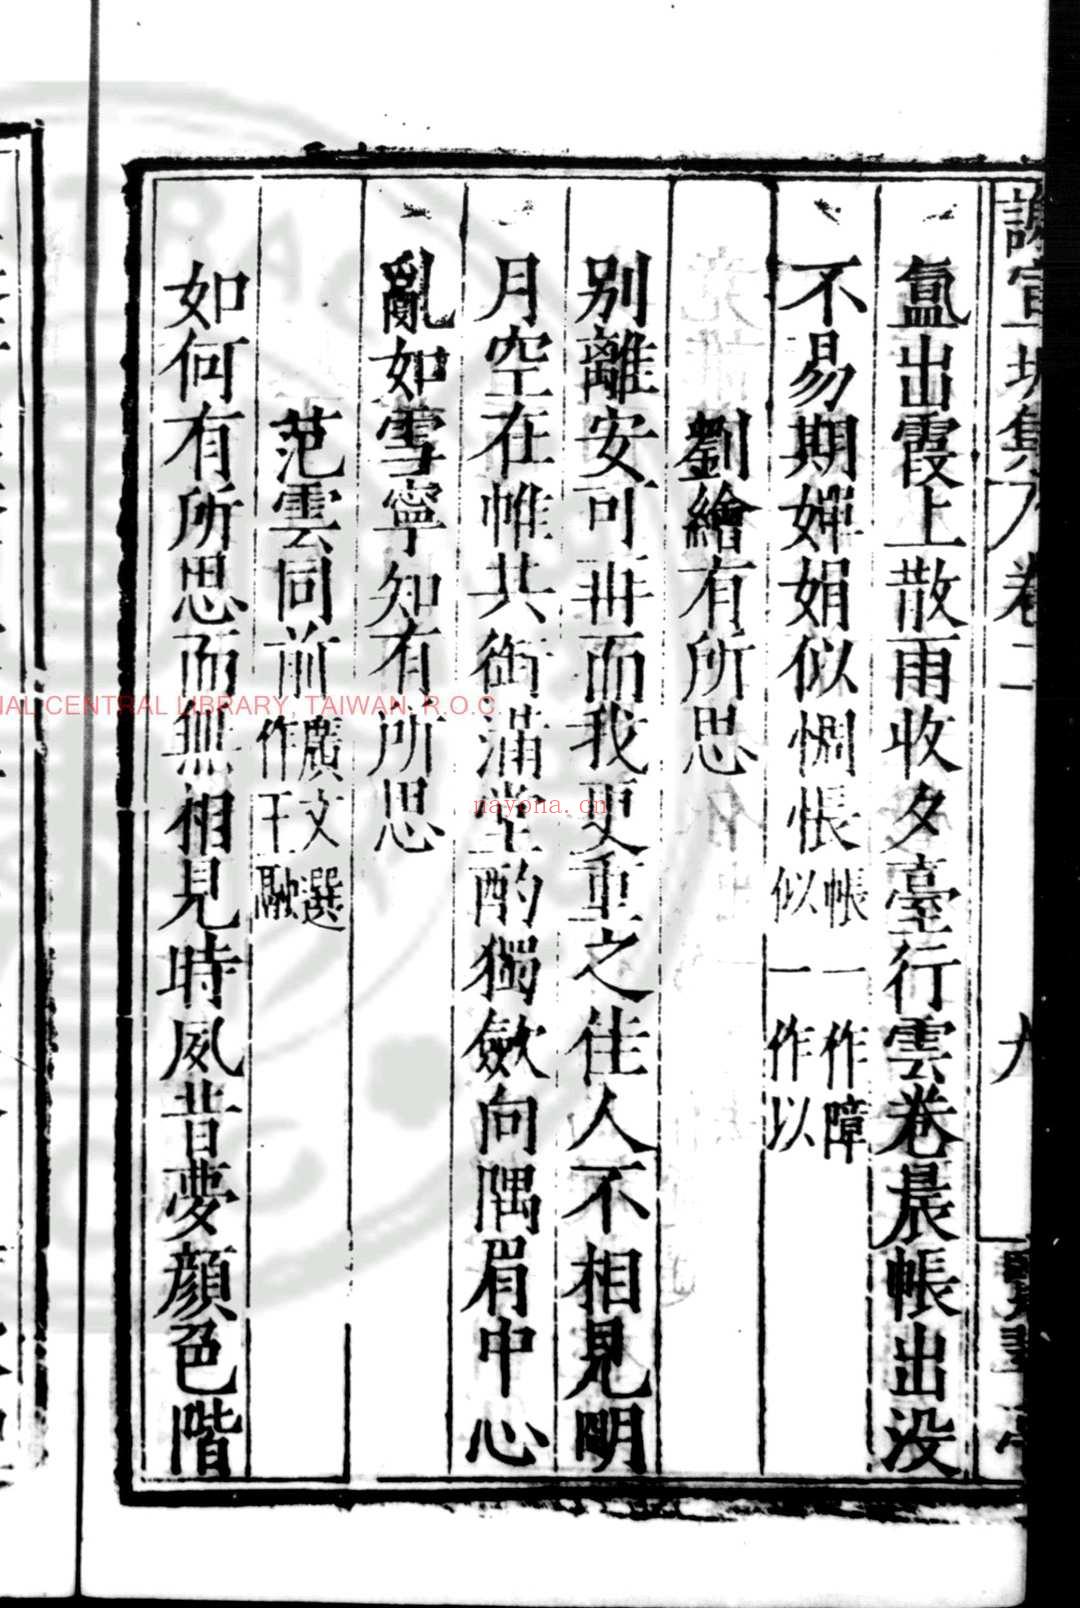 謝宣城集 卷二 九
氳出霞上散雨收夕臺行雲卷晨帳出没
不易期嬋娟似惆悵帳一作障似一作以
劉繪有所思
別離安可再而我更重之佳人不相見明
月空在帷共銜滿堂酌獨斂向隅眉中心
亂如雪寧知有所思
范雲同前廣文選作王融
如何有所思而無相見時夙昔夢顔色階
NAL CENTRAL LIBRARY, TAIWAN, R.O.C.
nayona.cn